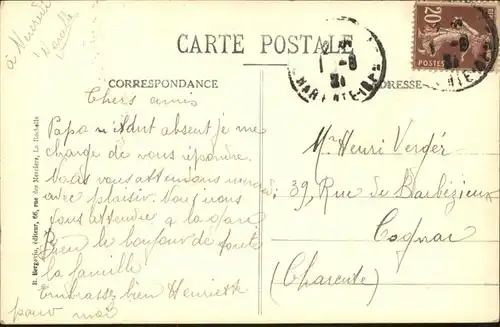 à Mercredi
CARTE POSTALE
20c
POSTES
CORRESPONDANCE
ADRESSE
Chers amis
Papa n'étant absent je me
charge de vous répondre
Nous vous attendons mercredi
avec plaisir. Nous irons
vous attendre a la gare
Bien le bonjour de toute
la famille
Embrassez bien Henriette
pour moi
Mr Henri Verger
39 Rue de Barbézieux
Cognac
(Charente)
R. Bergevin, éditeur, 66, rue des Merciers, La Rochelle